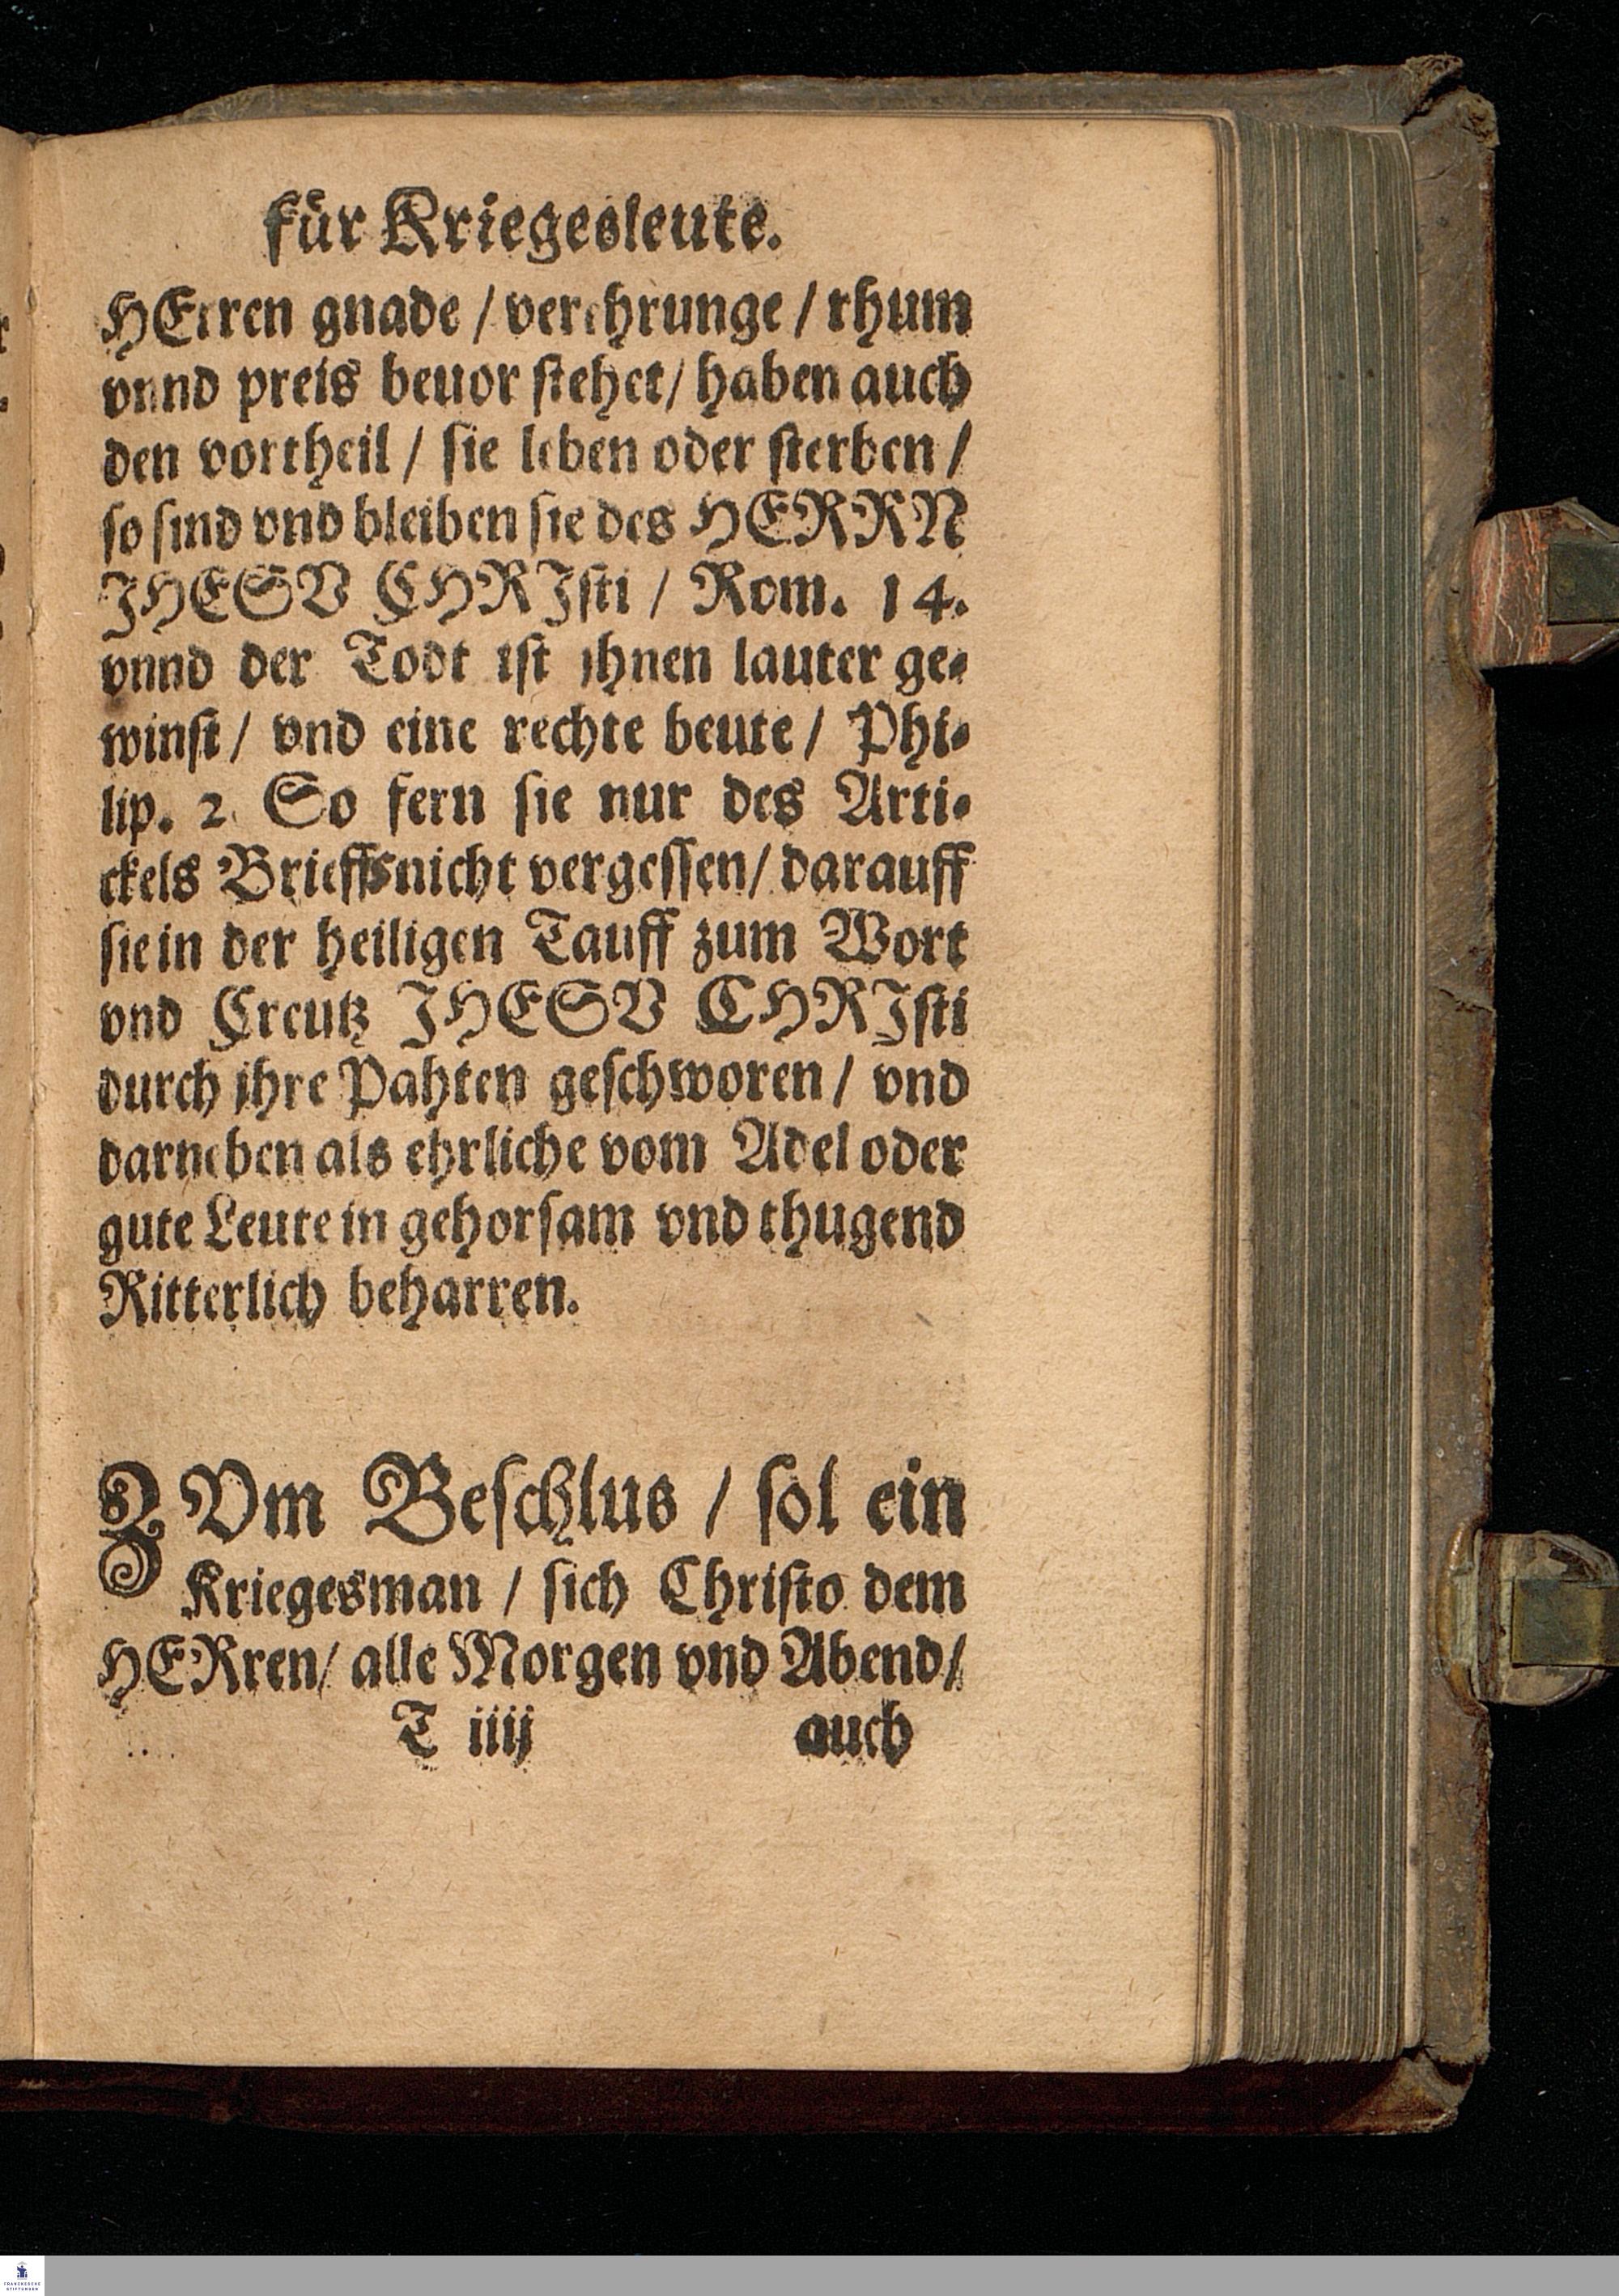 fuͤr Kriegesleute.
HErren gnade / verehrunge / rhum
vnnd preis beuor stehet / haben auch
den vortheil / sie leben oder sterben /
so sind vnd bleiben sie des HERRN
JHESV CHRJsti / Rom. 14.
vnnd der Todt ist jhnen lauter ge-
winst / vnd eine rechte beute / Phi-
lip. 2. So fern sie nur des Arti-
ckels Brieffs nicht vergessen / darauff
sie in der heiligen Tauff zum Wort
vnd Creutz JHESV CHRJsti
durch jhre Pahten geschworen / vnd
darneben als ehrliche vom Adel oder
gute Leute in gehorsam vnd thugend
Ritterlich beharren.
ZVm Beschlus / sol ein
Kriegesman / sich Christo dem
HERren / alle Morgen vnd Abend /
T iiij auch
FRANCKESCHE
STIFTUNGEN